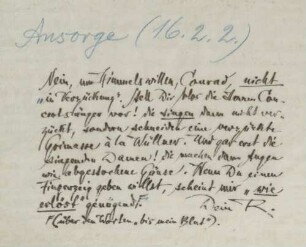 Ansorge (16.2.2.)
Nein, um Himmelswillen, Conrad, nicht
"in Verzückung". Stell Dir blos die Herren Con-
certsänger vor! die singen dann nicht ver-
zückt, sondern schneiden eine verzückte
Grimasse à la Wüllner. Und gar erst die
singenden Damen! die machen dann Augen
wie abgestochene Gänse. Wenn Du einen
Fingerzeig geben willst, scheint mir "wie
erlöst" genügend.
Dein R.
(über den Worten "bis mein Blut").